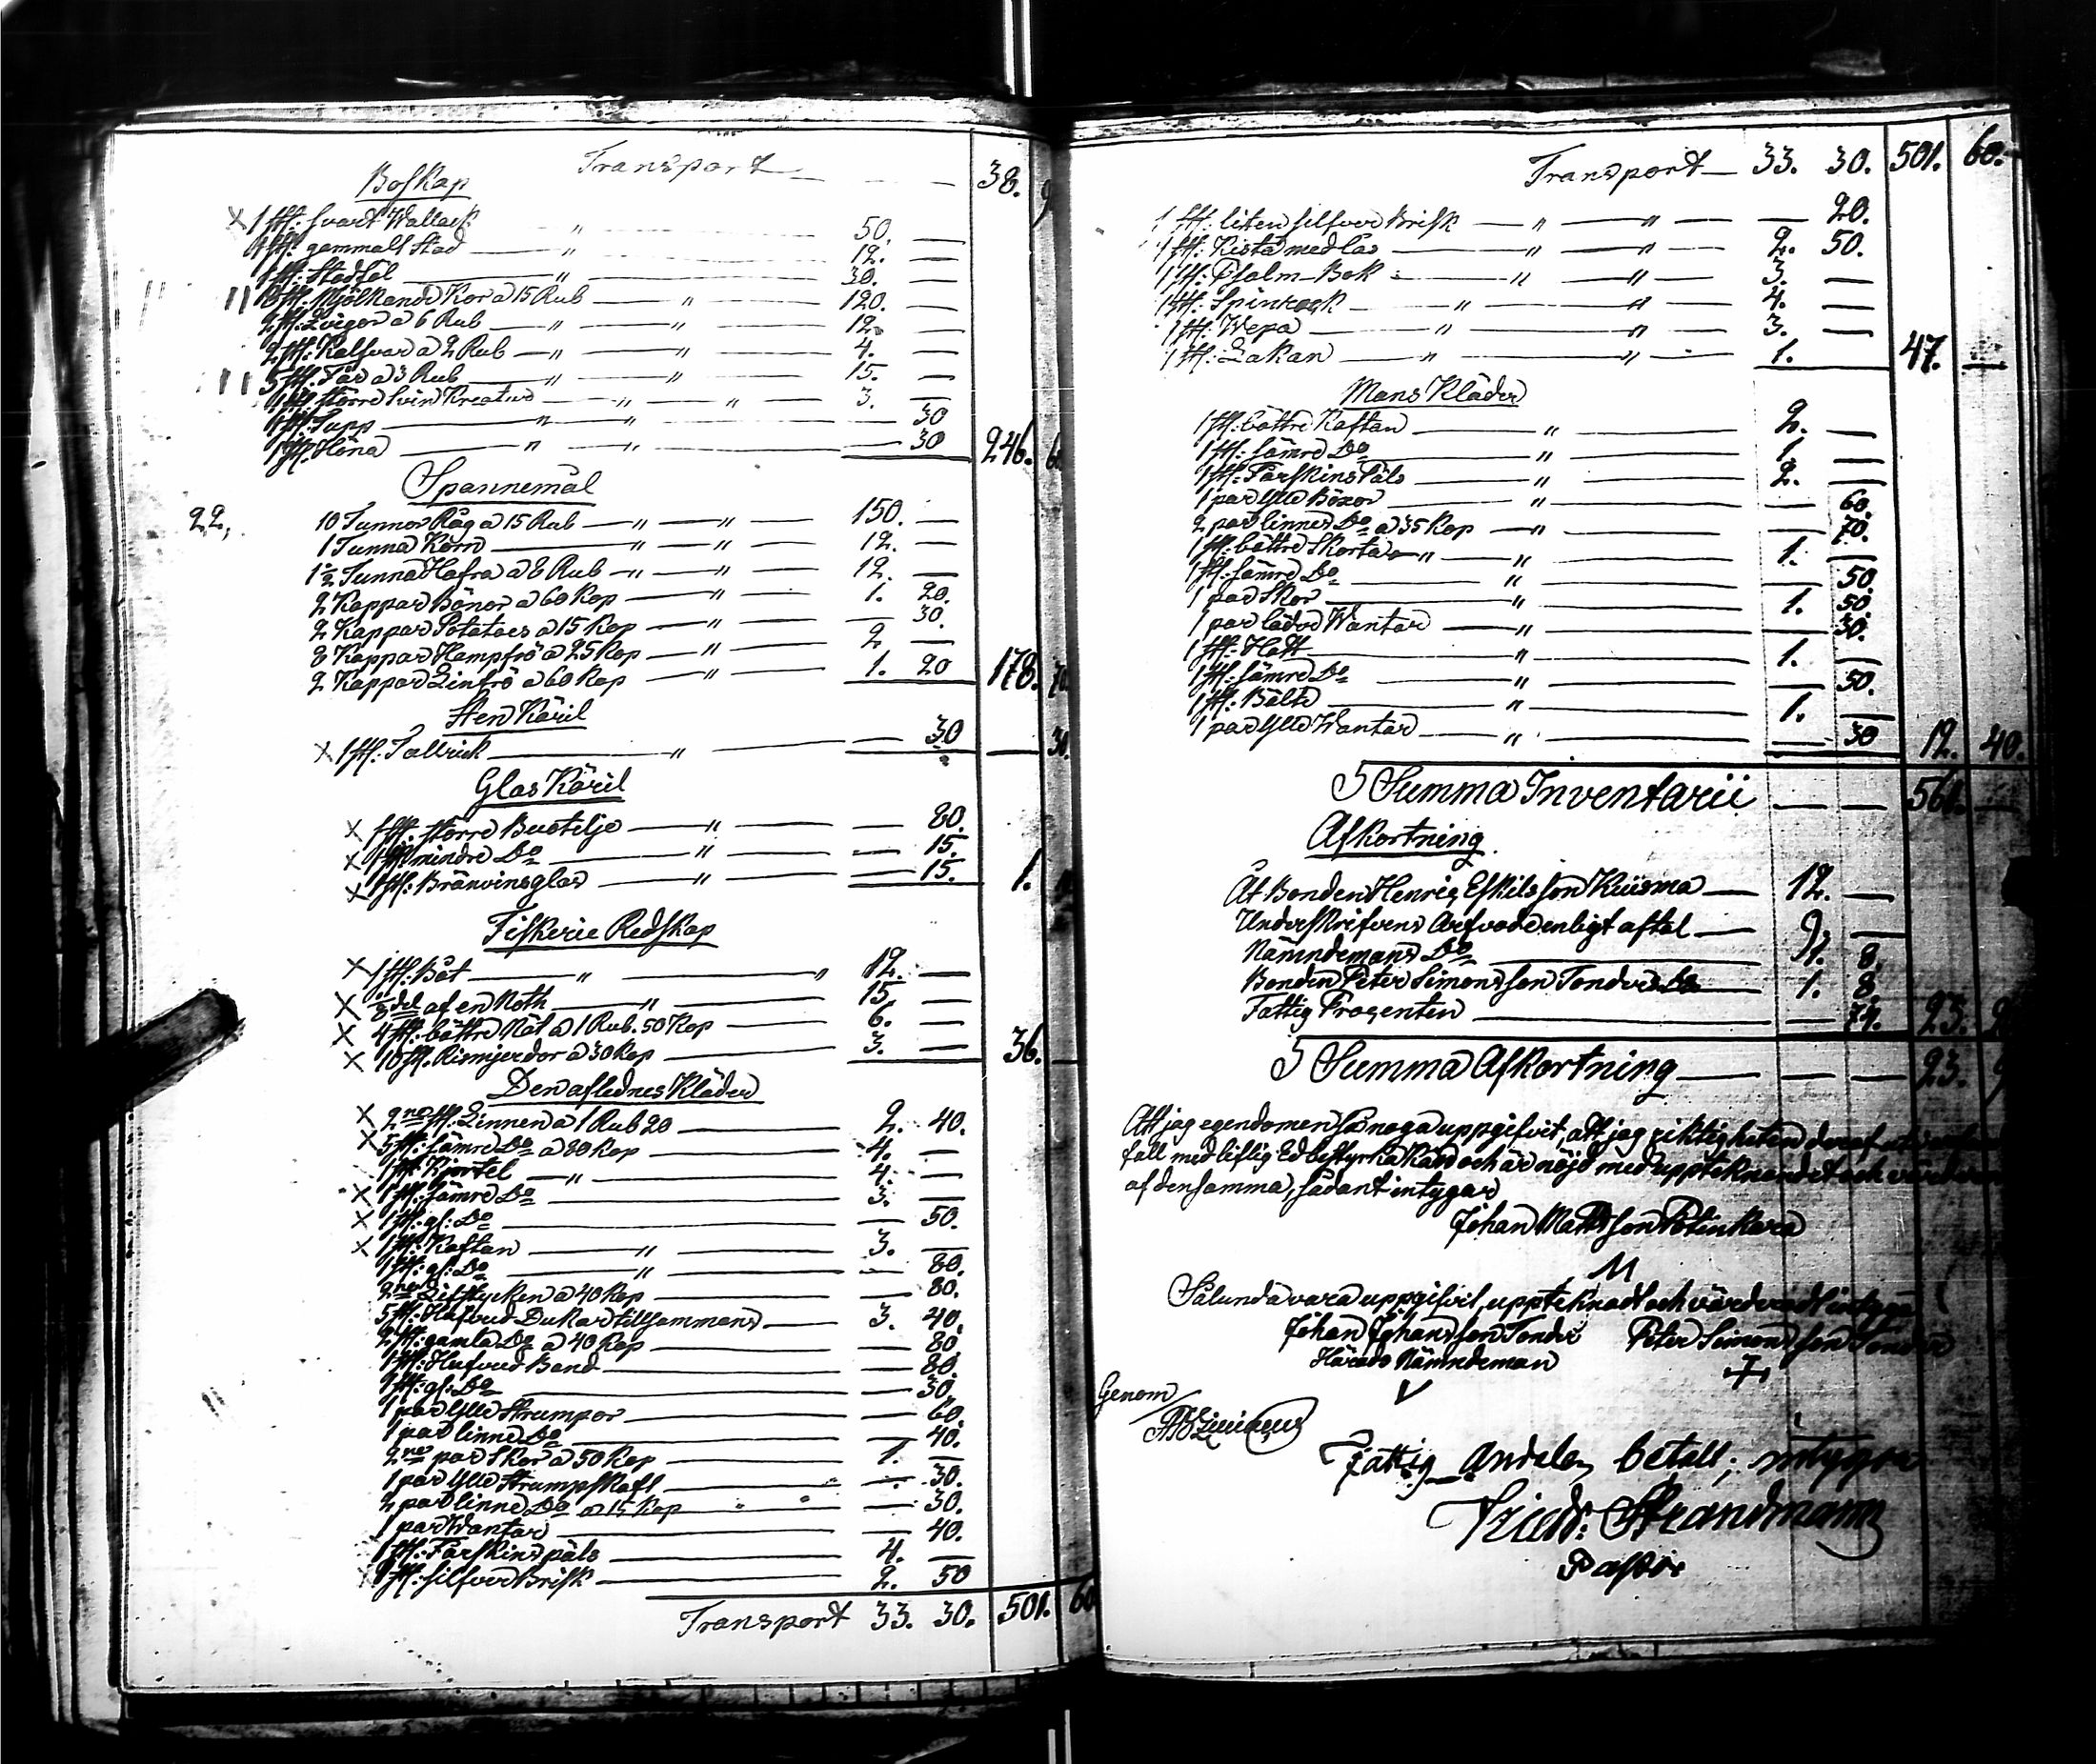 Transport — 38. 9
Boskap
1 st: svart Wallack „ 50. —
1 st: gammalt Stod „ 12. —
1 st: Stodföl „ 30. —
8 st: Mjölkande Kor a 15 Rub „ 120. —
2 st: Qvigor a 6 Rub „ „ 12. —
2 st: Kalfvar a 2 Rub „ „ 4. —
5 st: Får a 3 Rub „ „ 15. —
1 st: större Svin Kreatur „ „ 3. —
1 st: Tupp „ „ — 30
1 st: Höna „ „ — 30 246. 60
Spannemål
22,
10 Tunnor Råg a 15 Rub „ „ 150. —
1 Tunna Korn „ „ 12. —
1½ Tunna Hafra a 8 Rub „ „ 12. —
2 Kappar Bönor a 60 Kop „ 1. 20.
2 Kappar Potatoes a 15 Kop „ — 30.
8 Kappar Hampfrö a 25 Kop „ 2 —
2 Kappar Linfrö a 60 Kop „ 1. 20 178. 70
Sten Käril
1 st. Tallrick „ — 30 — 30.
Glas Käril
1 st. större Buotelje „ — 80.
1 st mindre Do „ — 15.
1 st: Bränvinsglas „ — 15. 1. 10
Fiskerie Redskap
1 st: Båt „ „ 12. —
1/8 del af en Noth „ 15. —
4 st: bättre Nät a 1 Rub. 50 Kop 6. —
10 st. Rismjerdor a 30 Kop 3. — 36. —
Den aflednes Kläder
2ne st. Linnen a 1 Rub 20 2. 40.
5 st: sämre Do a 80 Kop 4. —
1 st Kjortel „ 4. —
1 st: sämre Do 3. —
1 st: gl: Do — 50.
1 st: Kaftan „ 3. —
1 st: gl: Do „ — 80.
2ne Lifstycken a 40 Kop — 80.
5 st: Hufvud Dukar tillsammans 3. 40.
2 st: gamla Do a 40 Kop — 80
1 st: Hufvud Band — 80.
1 st: gl: Do — 30.
1 par Ylle Strumpor — 60.
1 par linne Do — 40.
2ne par Skor a 50 Kop 1. —
1 par Ylle Strumpskaft — 30.
2 par linne Do a 15 Kop — 30.
1 par Wantar — 40.
1 st: Fårskins päls 4. —
1 st: silfver Brisk 2. 50
Transport 33. 30. 501. 60
Transport — 33. 30. 501. 60.
1 st: liten silfver Brisk „ „ — 20.
1 st: Kista med Lås „ „ 2. 50.
1 st: Psalm-Bok „ „ 3. —
1 st: Spinrock „ „ 4. —
1 st: Wepa „ „ 3. —
1 st: Lakan „ „ 1. 47. —
Mans Kläder
1 st: bättre Kaftan „ 2. —
1 st: sämre Do „ 1. —
1 st: Fårskins Päls „ 2. —
1 par Ylle Böxor „ — 60.
2 par linnes Do a 35 Kop „ — 70.
1 st: bättre Skorta „ „ 1. —
1 st: sämre Do „ — 50
1 par Skor „ 1. 50.
1 par läder Wantar „ — 30.
1 st: Hatt „ 1. —
1 st: sämre Do „ — 50.
1 st: Bälte „ 1. —
1 par Ylle Wantar „ — 30 12. 40.
Summa Inventarii — — 561. —
Afkortning.
Åt Bonden Henric Eskilsson Kuisma 12. —
Underskrifvens Arfvode enligt aftal 9. —
Nämndemans Do 1. 8.
Bonden Peter Simonsson Tonder Do 1. 8.
Fattig Procenten — 74. 23. 9
Summa Afkortning — — 23. 9
Att jag egendomen så noga uppgifvit, att jag riktigheten deraf
fall med liflig Ed bestyrka kan och är nöjd med uppteknandet och
af densamma, sådant intygar
Johan Mattsson Pötinkara
M
Sålunda vara uppgifvit, uppteknadt och värderadt intyga
Johan Johansson Tonder Peter Simonsson Tonder
Härads Nämndeman
Genom
Fattig Andelen betalt; intygar
Friedr: Strandmann
Pastor